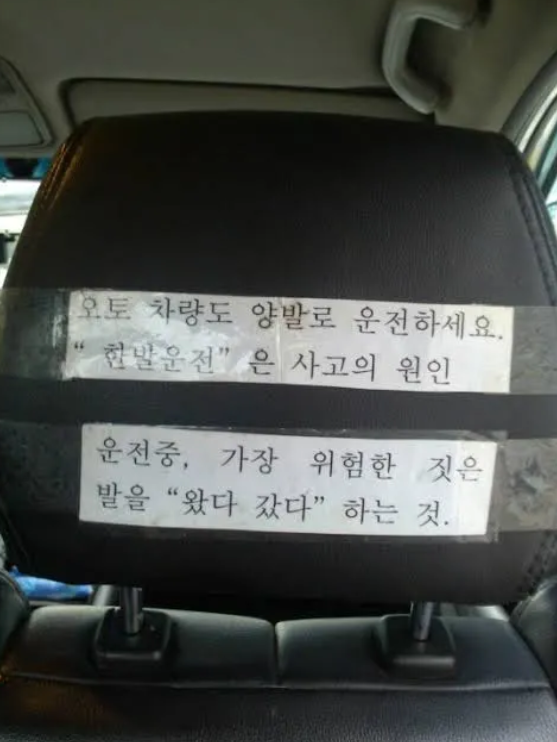 오토 차량도 양발로 운전하세요.
“ 한발운전” 은 사고의 원인
운전중, 가장 위험한 짓은
발을 “왔다 갔다” 하는 것.